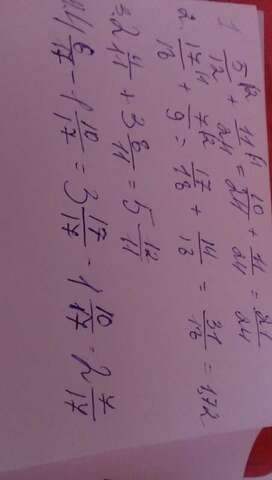 1 5/12 + 11/24 = 10/24 + 11/24 = 21/24
2. 17/18 + 7/9 = 17/18 + 14/18 = 31/18 = 1,72
3. 2 4/11 + 3 8/11 = 5 12/11
4. 4 6/17 - 1 10/17 = 3 17/17 - 1 10/17 = 2 7/17